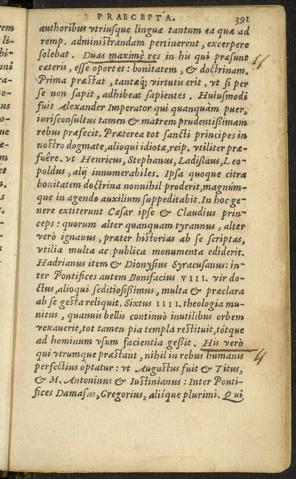 PRAECEPTA. 391
authoribus vtriusque linguæ tantum ea quæ ad
remp. administrandam pertinerent, excerpere
solebat. Duas maximè res in his qui præsunt
cæteris, esse oportet: bonitatem, & doctrinam.
Prima præstat, tantæq; virtutis erit, vt si per
se non sapit, adhibeat sapientes. Huiusmodi
fuit Alexander Imperator qui quanquàm puer,
iurisconsultus tamen & matrem prudentissimam
rebus præfecit. Præterea tot sancti principes in
nostro dogmate, alioqui idiotæ, reip. vtiliter præ-
fuêre. vt Henricus, Stephanus, Ladislaus, Leo-
poldus, alij innumerabiles. Ipsa quoque citra
bonitatem doctrina nonnihil proderit, magnúm-
que in agendo auxilium suppeditabit. In hoc ge-
nere extiterunt Cæsar ipse & Claudius prin-
ceps: quorum alter quanquam tyrannus, alter
verò ignauus, præter historias ab se scriptas,
vtilia multa ac publica monumenta ediderit.
Hadrianus item & Dionysius Syracusanus: in-
ter Pontifices autem Bonifacius VIII. vir do-
ctus, alioqui seditiosissimis, multa & præclara
ab se gesta reliquit. Sixtus IIII. theologia mu-
nitus, quanuis bellis continuò inutilibus orbem
vexauerit, tot tamen pia templa restituit, tótque
ad hominum vsum facientia gessit. His verò
qui vtrumque præstant, nihil in rebus humanis
perfectius optatur: vt Augustus fuit & Titus,
& M. Antoninus & Iustinianus: Inter Ponti-
fices Damasus, Gregorius, alijque plurimi. Qui